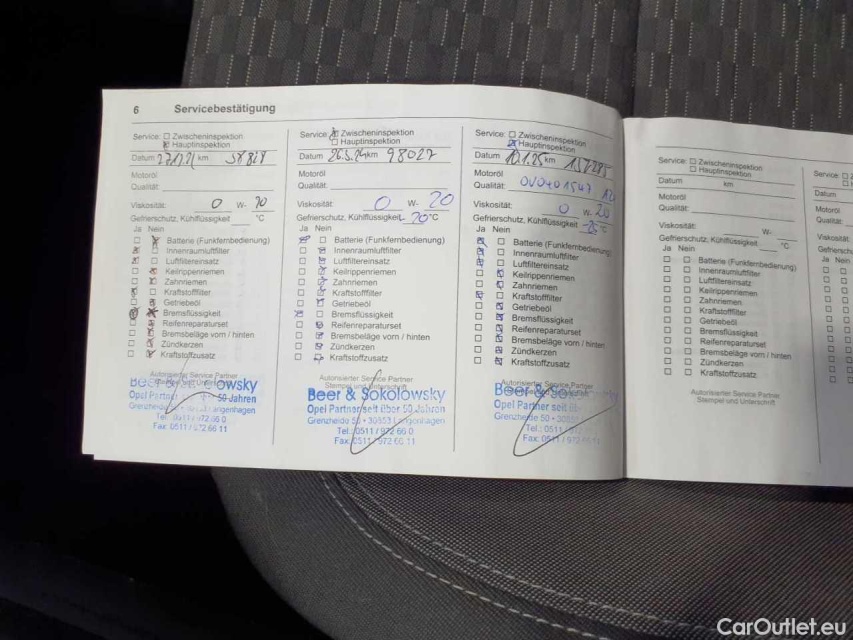 6 Servicebestätigung
Service: Zwischeninspektion
Hauptinspektion
Datum km
Motoröl
Qualität:
Viskosität: 0 W-
Gefrierschutz, Kühlflüssigkeit °C
Ja Nein
Batterie (Funkfernbedienung)
Innenraumluftfilter
Luftfiltereinsatz
Keilrippenriemen
Zahnriemen
Kraftstofffilter
Getriebeöl
Bremsflüssigkeit
Reifenreparaturset
Bremsbeläge vorn / hinten
Zündkerzen
Kraftstoffzusatz
Autorisierter Service Partner
Stempel und Unterschrift
Beer & Sokolowsky
Opel Partner seit über 50 Jahren
Grenzheide 50 • 30853 Langenhagen
Tel.: 0511 / 972 66 0
Fax: 0511 / 972 66 11
Service: Zwischeninspektion
Hauptinspektion
Datum 26.5.24 km 98027
Motoröl
Qualität:
Viskosität: 0 W- 20
Gefrierschutz, Kühlflüssigkeit 20 °C
Ja Nein
Batterie (Funkfernbedienung)
Innenraumluftfilter
Luftfiltereinsatz
Keilrippenriemen
Zahnriemen
Kraftstofffilter
Getriebeöl
Bremsflüssigkeit
Reifenreparaturset
Bremsbeläge vorn / hinten
Zündkerzen
Kraftstoffzusatz
Autorisierter Service Partner
Stempel und Unterschrift
Beer & Sokolowsky
Opel Partner seit über 50 Jahren
Grenzheide 50 • 30853 Langenhagen
Tel.: 0511 / 972 66 0
Fax: 0511 / 972 66 11
Service: Zwischeninspektion
Hauptinspektion
Datum 10.1.25 km
Motoröl
Qualität:
Viskosität: 0 W- 20
Gefrierschutz, Kühlflüssigkeit -25 °C
Ja Nein
Batterie (Funkfernbedienung)
Innenraumluftfilter
Luftfiltereinsatz
Keilrippenriemen
Zahnriemen
Kraftstofffilter
Getriebeöl
Bremsflüssigkeit
Reifenreparaturset
Bremsbeläge vorn / hinten
Zündkerzen
Kraftstoffzusatz
Autorisierter Service Partner
Beer &
Opel Partner seit
Grenzheide 50 • 30853
Tel.: 0511 /
Fax: 0511 / 972
Service: Zwischeninspektion
Hauptinspektion
Datum km
Motoröl
Qualität:
Viskosität: W-
Gefrierschutz, Kühlflüssigkeit °C
Ja Nein
Batterie (Funkfernbedienung)
Innenraumluftfilter
Luftfiltereinsatz
Keilrippenriemen
Zahnriemen
Kraftstofffilter
Getriebeöl
Bremsflüssigkeit
Reifenreparaturset
Bremsbeläge vorn / hinten
Zündkerzen
Kraftstoffzusatz
Autorisierter Service Partner
Stempel und Unterschrift
Service:
Datum
Motoröl
Qualität:
Ja Nein
CarOutlet.eu